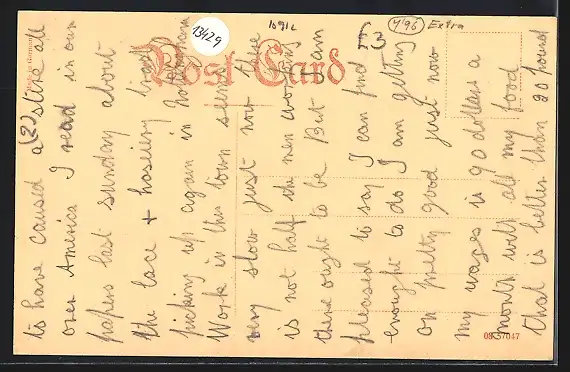 (2)
to have caused a stire all
over America I read in our
papers last sunday about
the lace + hoseiry trade
picking up again in Nottingham
Work in this town seems
very slow just now there
is not half the men working
there ought to be But I am
pleased to say I can find
enought to do I am getting
on pretty good just now
my wages is 90 dollars a
month with all my food
that is better than 30 pound
Post Card
13429
4196
Extra
08 57047